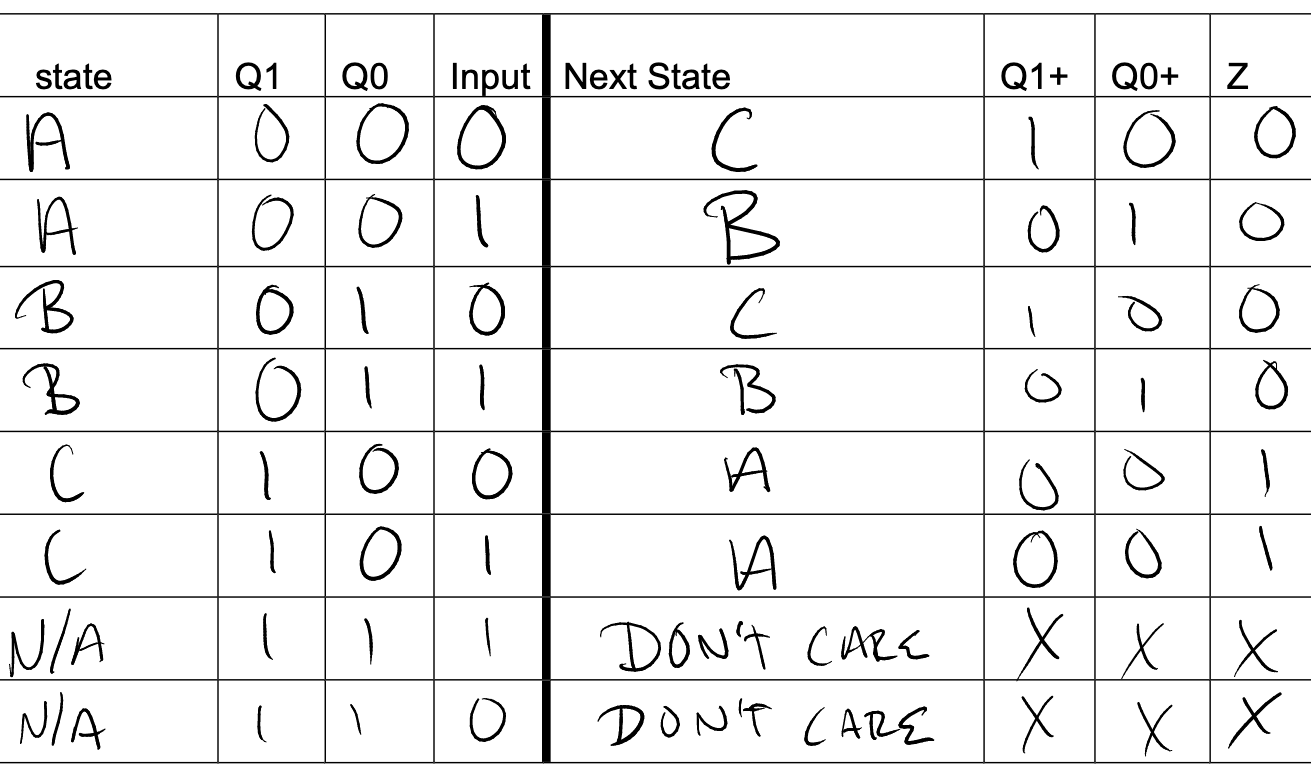 state Q1 Q0 Input Next State Q1+ Q0+ Z
A 0 0 0 C 1 0 0
A 0 0 1 B 0 1 0
B 0 1 0 C 1 0 0
B 0 1 1 B 0 1 0
C 1 0 0 A 0 0 1
C 1 0 1 A 0 0 1
N/A 1 1 1 DON'T CARE X X X
N/A 1 1 0 DON'T CARE X X X